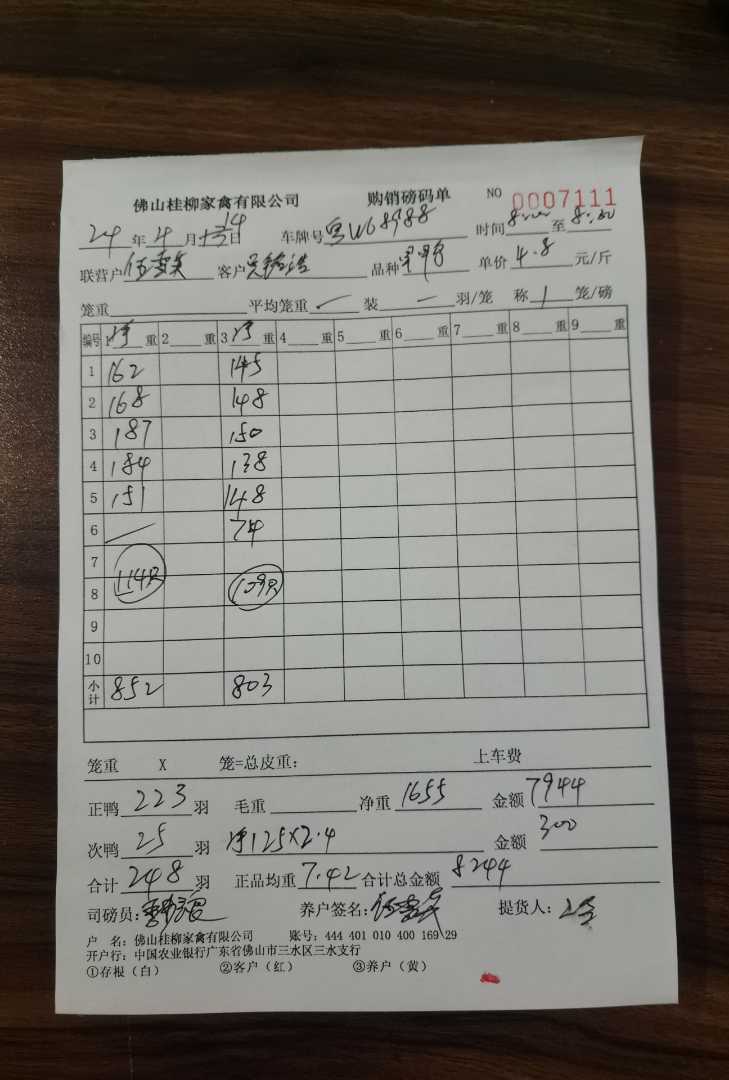 佛山桂柳家禽有限公司 购销磅码单 NO 0007111
24年4月14日 车牌号粤W68988 时间 至8:30
联营户 客户 品种 单价4.8元/斤
笼重 平均笼重一 装一羽/笼 称1笼/磅
编号 1净重 2重 3净重 4重 5重 6重 7重 8重 9重
1 162 145
2 168 148
3 187 150
4 184 138
5 151 148
6 一 74
7
8 114只 109只
9
10
小计 852 803
笼重 X 笼=总皮重: 上车费
正鸭223羽 毛重 净重1655 金额7944
次鸭25羽 净125×2.4 金额300
合计248羽 正品均重7.42 合计总金额8244
司磅员: 养户签名: 提货人:
户 名: 佛山桂柳家禽有限公司 账号: 444 401 010 400 169 29
开户行: 中国农业银行广东省佛山市三水区三水支行
①存根(白) ②客户(红) ③养户(黄)